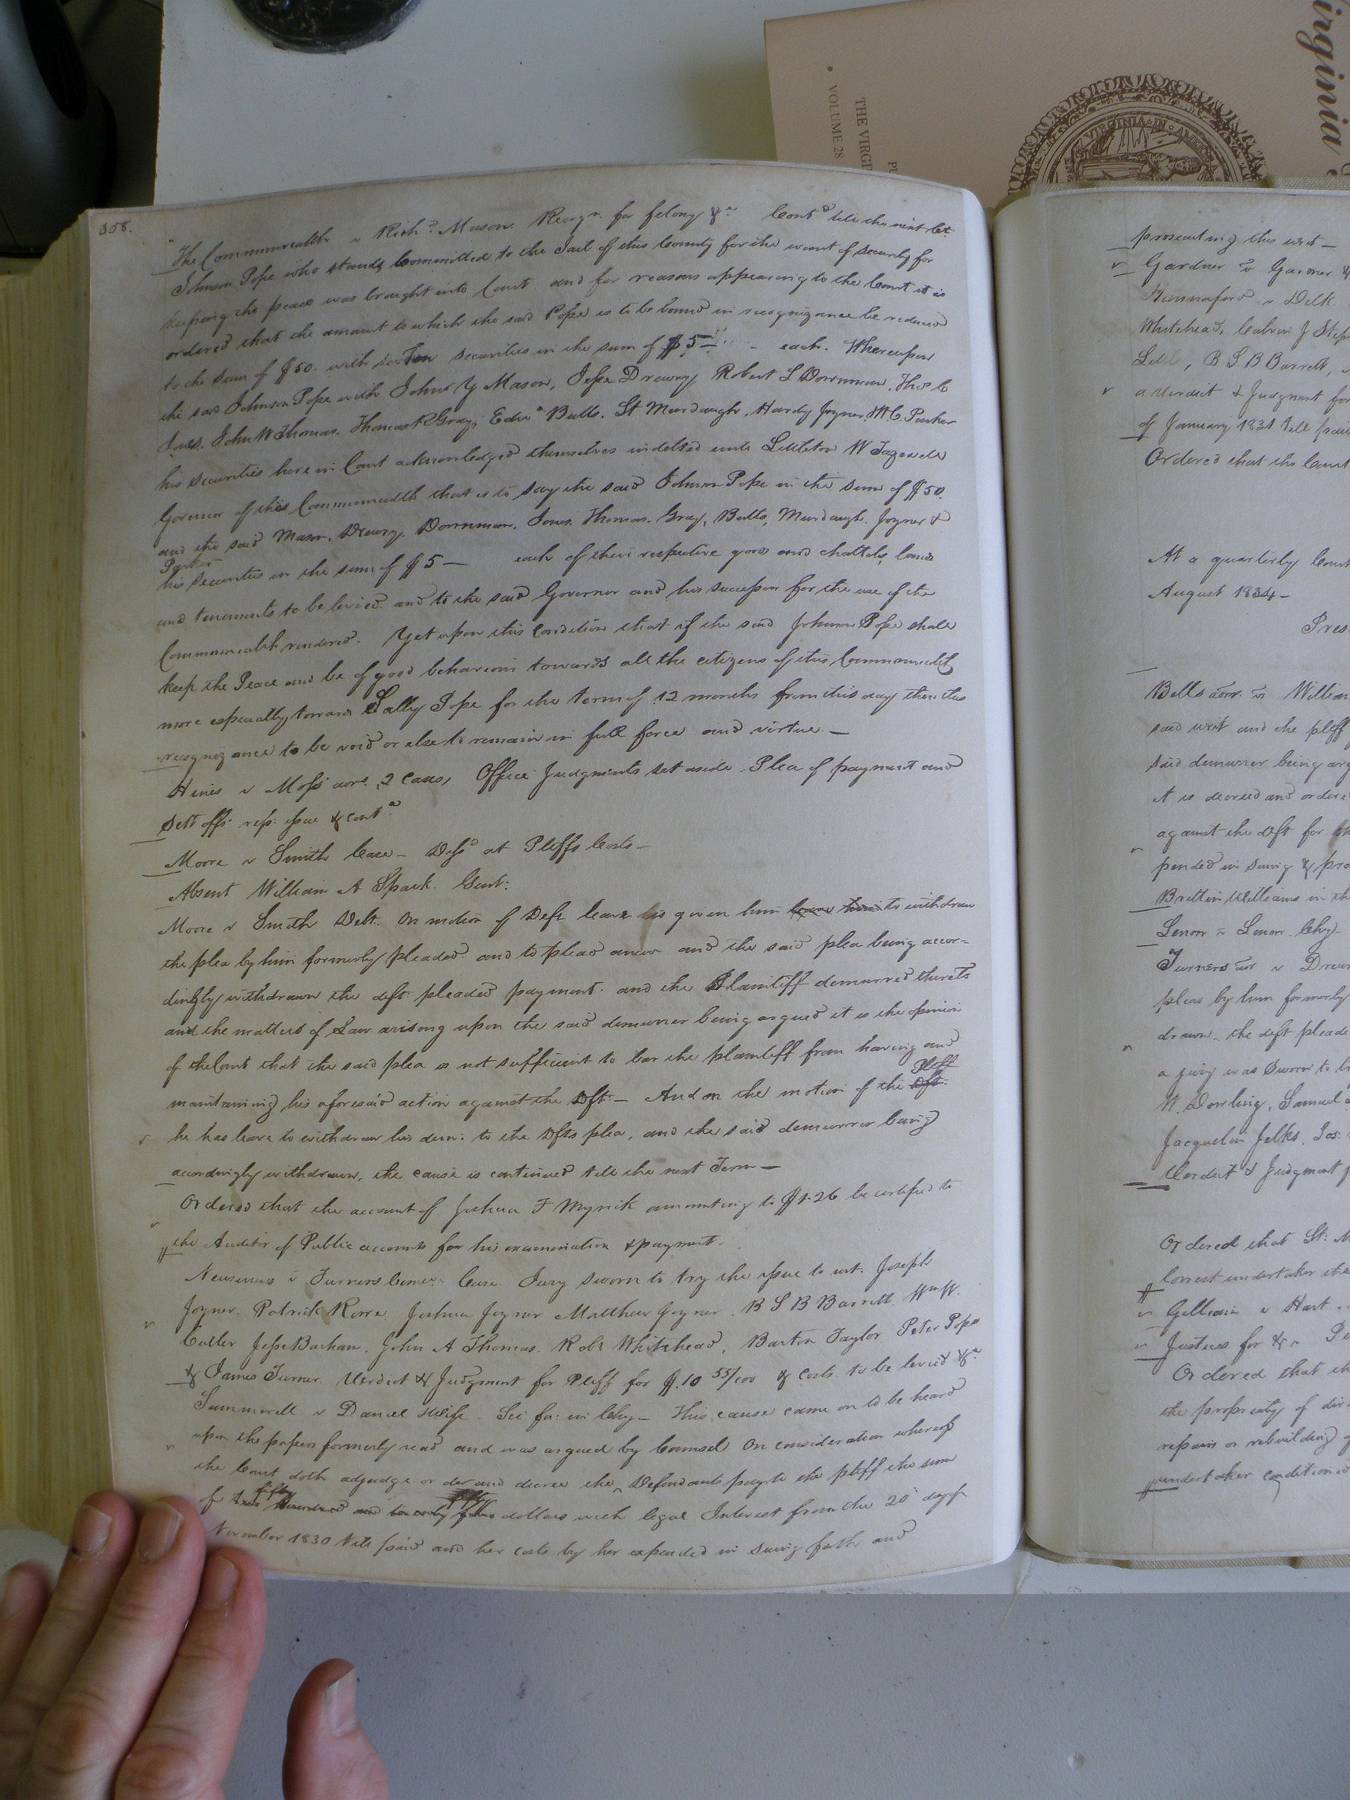 358.
The Commonwealth v Richd. Mason Recogn. for felony &c. Contd. till the next Ct.
Johnson Pope who stands Committed to the Jail of this County for the want of security for
keeping the peace was brought into Court and for reasons appearing to the Court it is
ordered that the amount to which the said Pope is to be bound in recognizance be reduced
to the sum of $50. with ten securities in the sum of $5— each. Whereupon
the said Johnson Pope with John Y Mason, Jesse Drewry, Robert S Dornman, Thos C
Jones. John W Thomas. Thomas Gray, Edwd. Butts. St Murdaugh. Hardy Joyner. M C. Parker
his securities here in Court acknowledged themselves indebted unto Littleton W Tazewell
Governor of this Commonwealth that is to say the said Johnson Pope in the sum of $50.
and the said Mason. Drewry. Dornman. Jones. Thomas. Gray, Butts, Murdaugh. Joyner &
Parker
his securities in the sum of $5— each of their respective goods and chattels, lands
and tenements to be levied and to the said Governor and his successors for the use of the
Commonwealth rendered. Yet upon this Condition that if the said Johnson Pope shall
keep the Peace and be of good behaviour towards all the citizens of this Commonwealth
more especially towards Sally Pope for the term of 12 months from this day then this
recognizance to be void or else to remain in full force and virtue—
Hines v Moss admr. 2 Cases, Office Judgments set aside. Plea of payment and
sett offs rep: issue & contd.
Moore v Smith Case— Diss. at Pltffs Costs—
Absent William A Spark. Gent:
Moore v Smith Debt. On motion of Deft leave is given him leave him to withdraw
the plea by him formerly pleaded and to plead anew and the said plea being accor-
dingly withdrawn the deft pleaded payment. and the Plaintiff demurred thereto
and the matters of Law arising upon the said demurrer being argued it is the opinion
of the Court that the said plea is not sufficient to bar the plaintiff from having and
maintaining his aforesaid action against the Dft.— And on the motion of the Dft. Pltff
he has leave to withdraw his dem: to the Dfts plea, and the said demurrer being
accordingly withdrawn, the cause is continued till the next Term—
Ordered that the account of Joshua F Myrick amounting to $1.26 be certified to
the Auditor of Public accounts for his examination & payment.
Newsums v Turners Case. Jury sworn to try the issue to wit. Joseph
Joyner. Patrick Korre Joshua Joyner Matthew Joyner. B S B Barrett Wm W.
Cutler Jesse Barham. John A Thomas. Robt Whitehead, Barton Taylor Peter Pope
& James Turner. Verdict & Judgment for Pltff for $.10 55/100 & Costs to be levied &c.
Summerell v Daniel & Wife. Sci fa: in Chy— This cause came on to be heard
upon the papers formerly read and was argued by Counsel On consideration whereof
the Court doth adjudge order and decree the Defendants pay to the pltff the sum
of fifty dollars with legal Interest from the 20 day of
November 1830 till paid and her costs by her expended in suing forth and
prosecuting this writ—
Gardner v Gardner &
Hannaford v Delk
Whitehead, Calvin J Step
Little, B S B Barrett,
a verdict & Judgment for
of January 1831 till paid
Ordered that the Court
At a quarterly Court
August 1834—
Pres
Butts v William
said writ and the pltff
said demurrer being arg
it is decreed and ordere
against the deft for
pended in suing & pro
Brittin Williams in th
Lenow v Lenow. Chy—
Turners v Drew
pleas by him formerly
drawn— the deft pleade
a jury was Sworn to
N. Dowling, Samuel
Jacquelin Jelks, Jos.
Verdict & Judgment f
Ordered that St: M
lowest undertaker
Gilliam v Hart.
Justices for &c
Ordered that th
the propriety of
repair or rebuilding
undertaker condition
VOLUME 28
THE VIRGI
PU
irginia
VIRGINIA